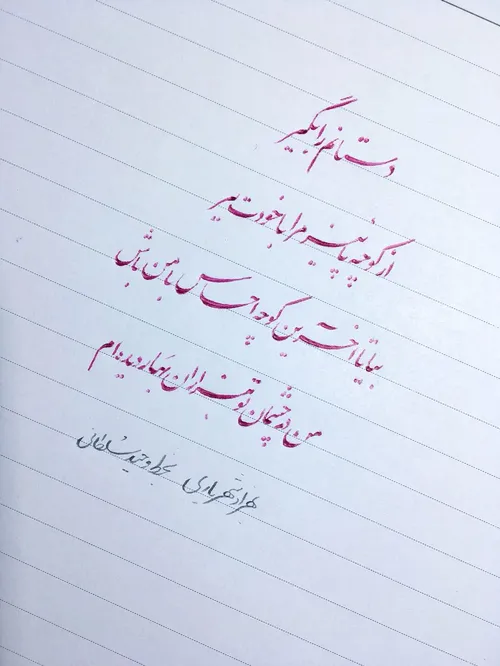 دستانم را بگیر
از کوچه پاییز مرا با خودت ببر
بیا تا آخرین کوچه احساس با من باش
من در چشمان تو هزاران بهار دیده‌ام
بهزاد شهریاری بخط وحید سلطانی